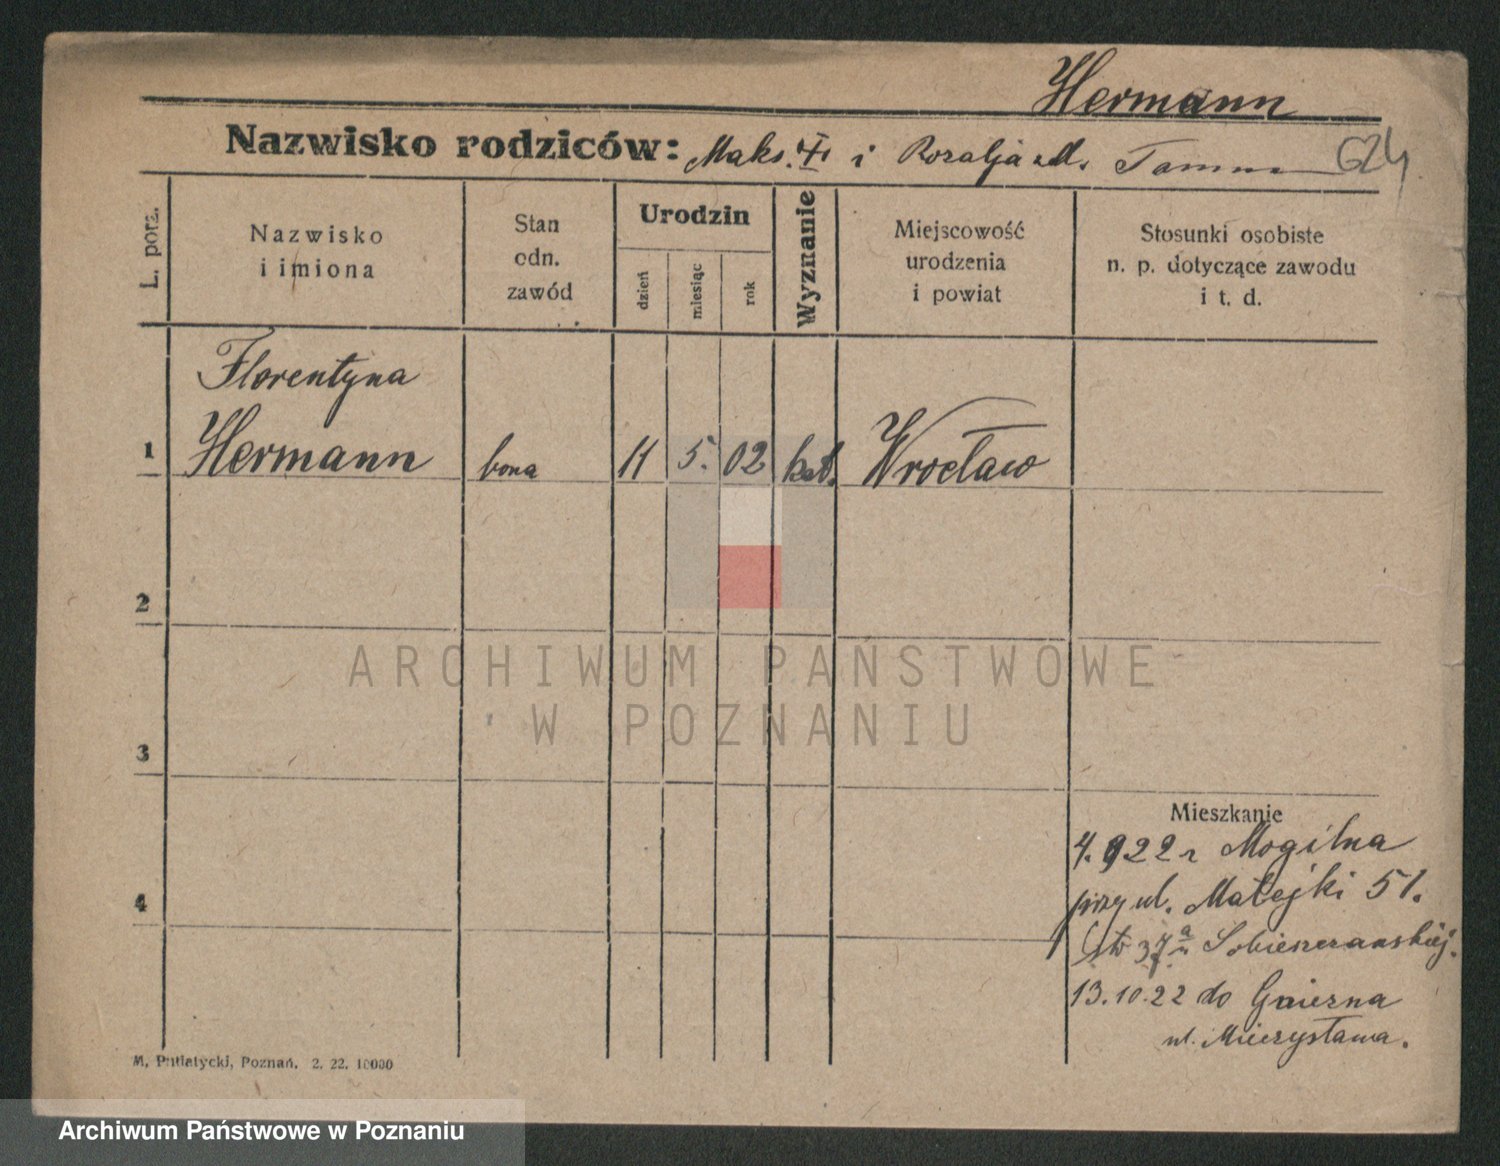 Hermann
Nazwisko rodziców: Maks. i Rozalja Tamm
624
L. porz.
Nazwisko
i imiona
Stan
odn.
zawód
Urodzin
dzień
miesiąc
rok
Wyznanie
Miejscowość
urodzenia
i powiat
Stosunki osobiste
n. p. dotyczące zawodu
i t. d.
Florentyna
1 Hermann bona 11 5. 02 kat. Wrocław
2
3
4
Mieszkanie
4.922 r Mogilna
przy ul. Matejki 51.
37a
13.10.22 do Gniezna
ul. Mieczysława.
M. Putiatycki, Poznań. 2. 22. 10000
ARCHIWUM PAŃSTWOWE
W POZNANIU
Archiwum Państwowe w Poznaniu